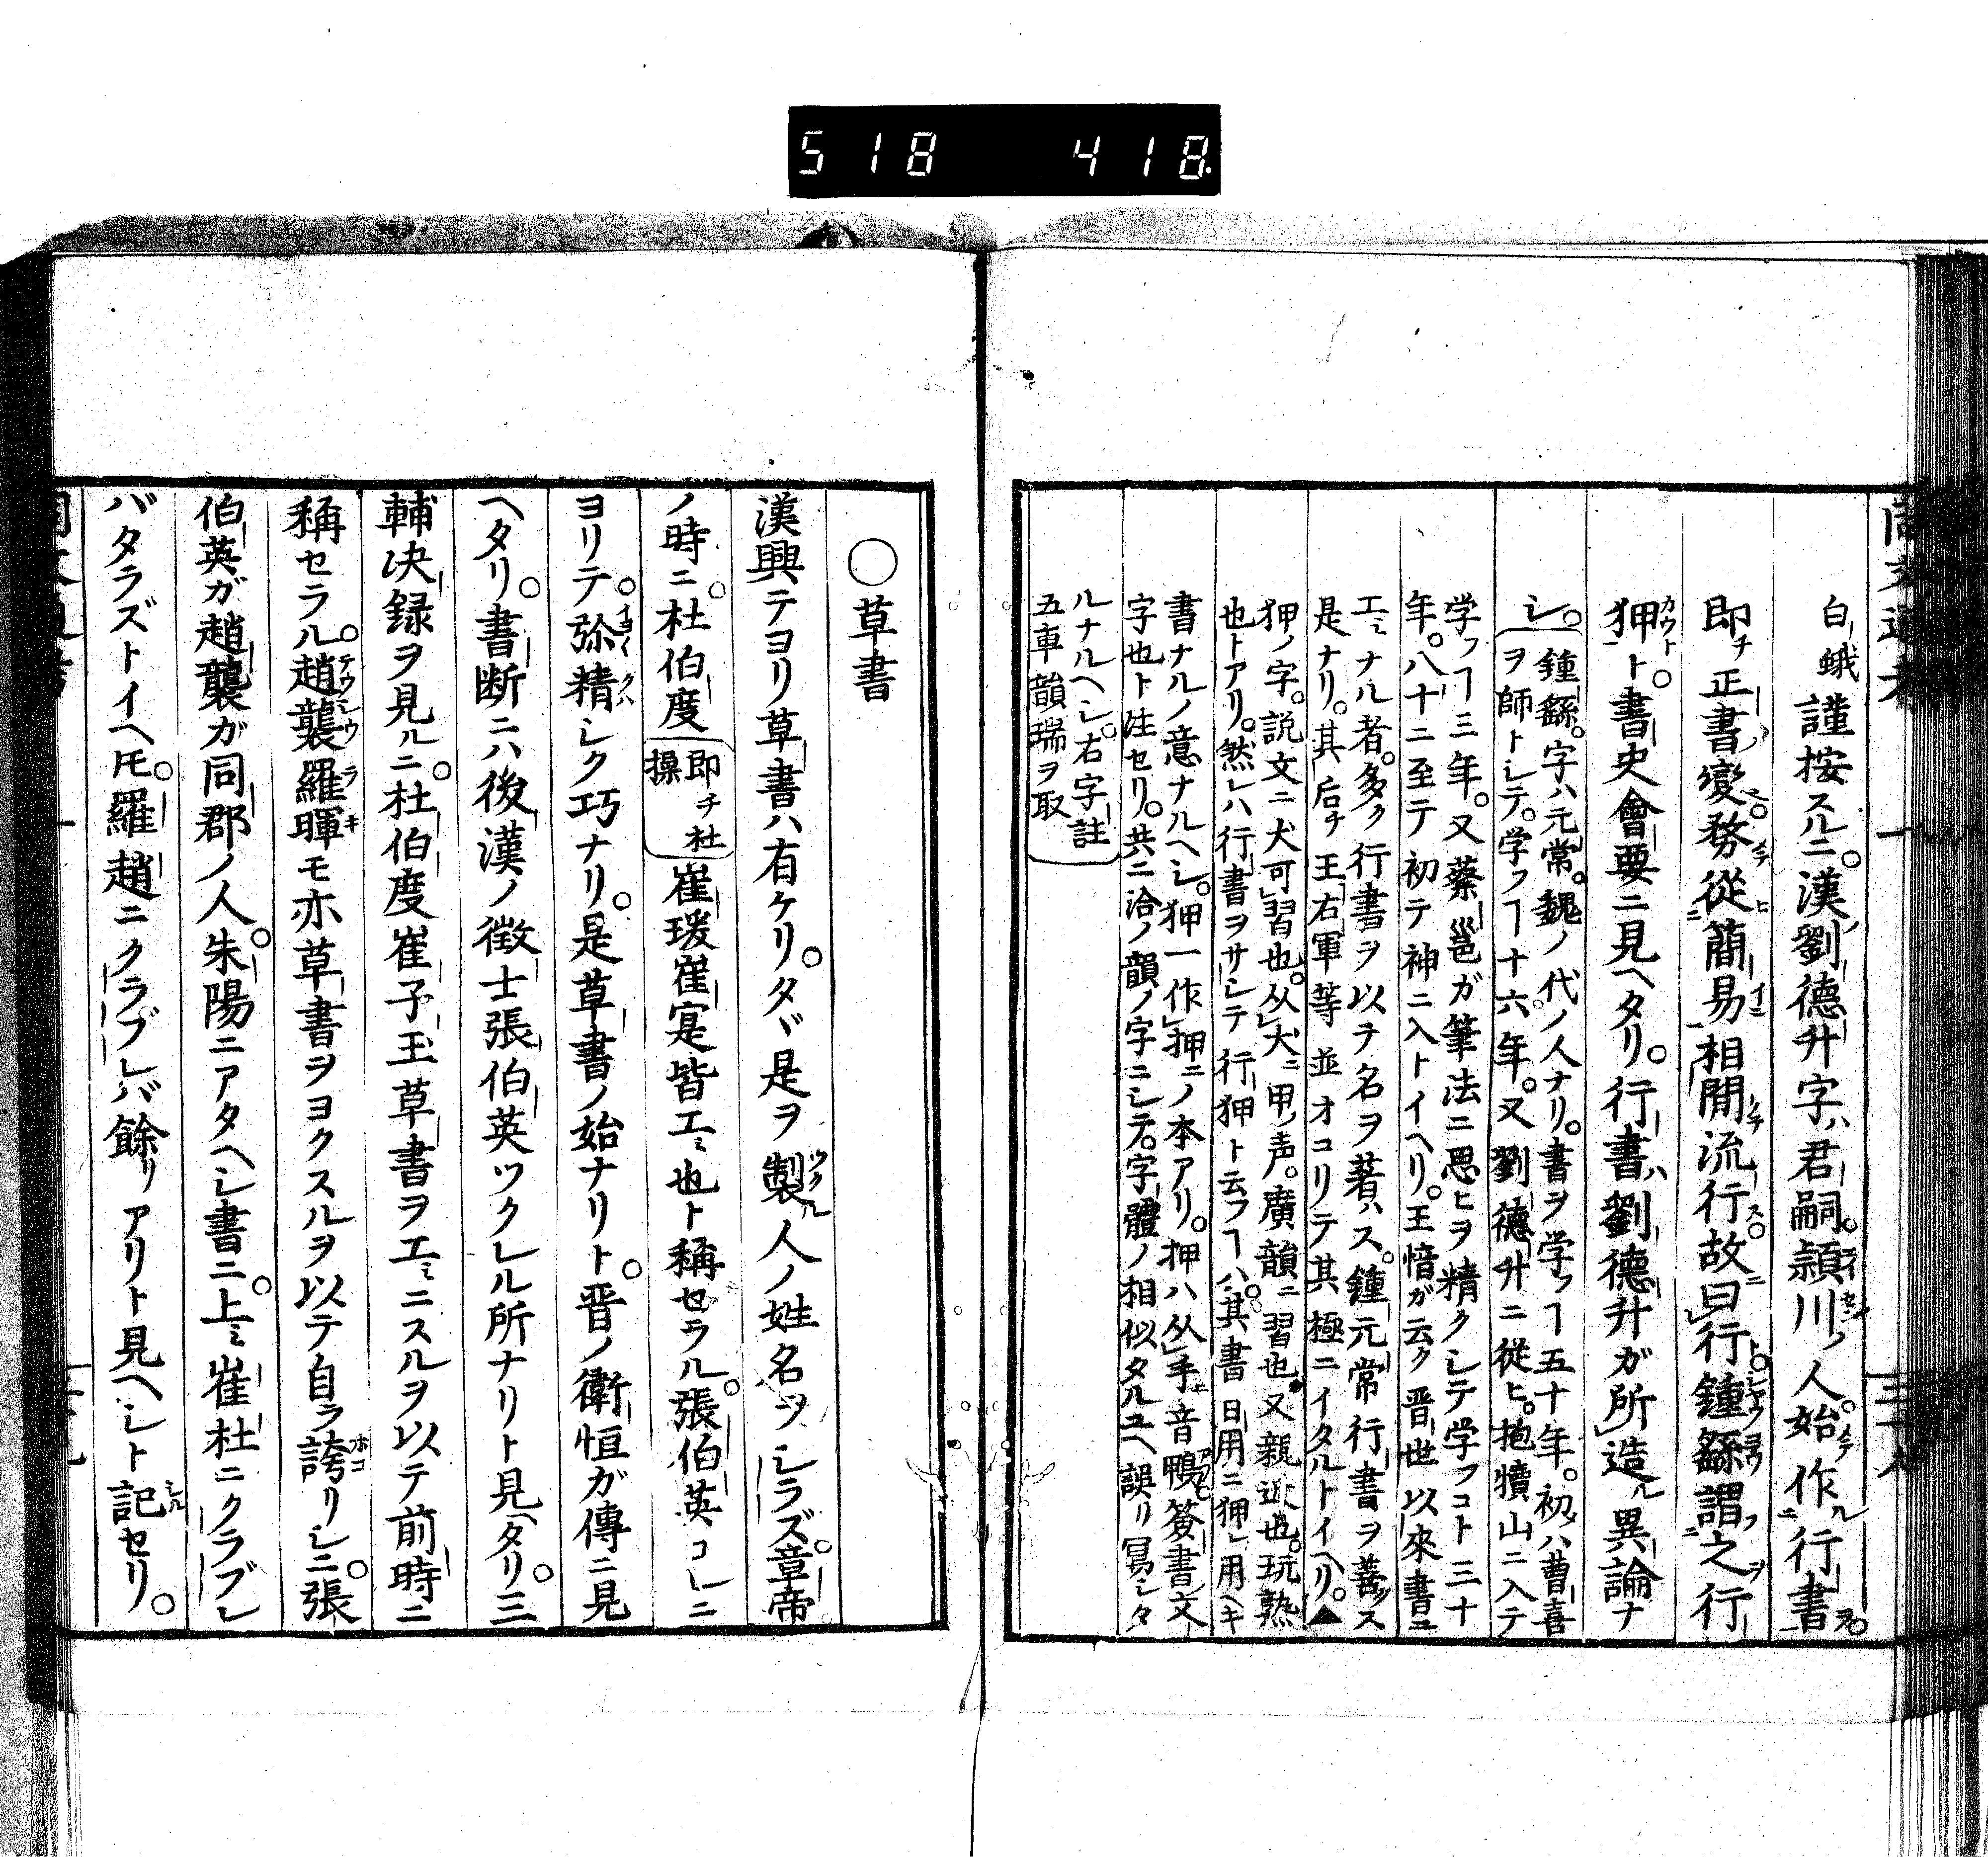 518 418
白蛾謹按スルニ。漢ノ劉德升字ハ君嗣。潁川ノ人。始作ル行書ヲ。
即チ正書變。務從簡易相間流行。故ニ曰行。鍾繇謂之行
狎ト。書史會要ニ見ヘタリ。行書ハ劉德升ガ所造ル異論ナ
シ。
鍾繇。字ハ元常。魏ノ代ノ人ナリ。書ヲ学フヿ五十年。初メハ曹喜
ヲ師トシテ。学フヿ十六年。又劉德升ニ從ヒ。抱犢山ニ入テ
学フヿ三年。又蔡邕ガ筆法ニ思ヒヲ精クシテ学フコト三十
年。八十ニ至テ初テ神ニ入トイヘリ。王愔ガ云ク晋世以來書ニ
工ミナル者。多ク行書ヲ以テ名ヲ著ハス。鍾元常行書ヲ善ッス
是ナリ。其后チ王右軍等並オコリテ其極ニイタルトイヘリ。▲
狎ノ字。説文ニ犬可習也。从犬ニ甲ノ声。廣韻ニ習也又親近也。玩熟
也トアリ。然レハ行書ヲサシテ行狎ト云フヿハ。其書日用ニ狎レ用ヘキ
書ナルノ意ナルヘシ。狎一作押ニノ本アリ。押ハ从手音鴨簽書文
字也ト注セリ。共ニ洽ノ韻ノ字ニシテ。字體ノ相似タルユヘ誤リ冩シタ
ルナルヘシ。右字註
五車韻瑞ヲ取
○草書
漢興テヨリ草書ハ有ケリ。タヾ是ヲ製ル人ノ姓名ヲシラズ。章帝
ノ時ニ。杜伯度
即チ杜
操
崔瑗崔寔皆工ミ也ト稱セラル。張伯英コレニ
ヨリテ。弥精シク巧ナリ。是草書ノ始ナリト。晋ノ衛恒ガ傳ニ見
ヘタリ。書断ニハ後漢ノ徴士張伯英ツクレル所ナリト見ヘタリ。三
輔决録ヲ見ルニ。杜伯度崔子玉草書ヲ工ミニスルヲ以テ前時ニ
稱セラル。趙襲羅暉モ亦草書ヲヨクスルヲ以テ自ラ誇リシニ。張
伯英ガ趙襲ガ同郡ノ人。朱陽ニアタヘシ書ニ。上ミ崔杜ニクラブレ
バタラズトイヘ𪜈。羅趙ニクラブレバ餘リアリト見ヘシト記セリ。